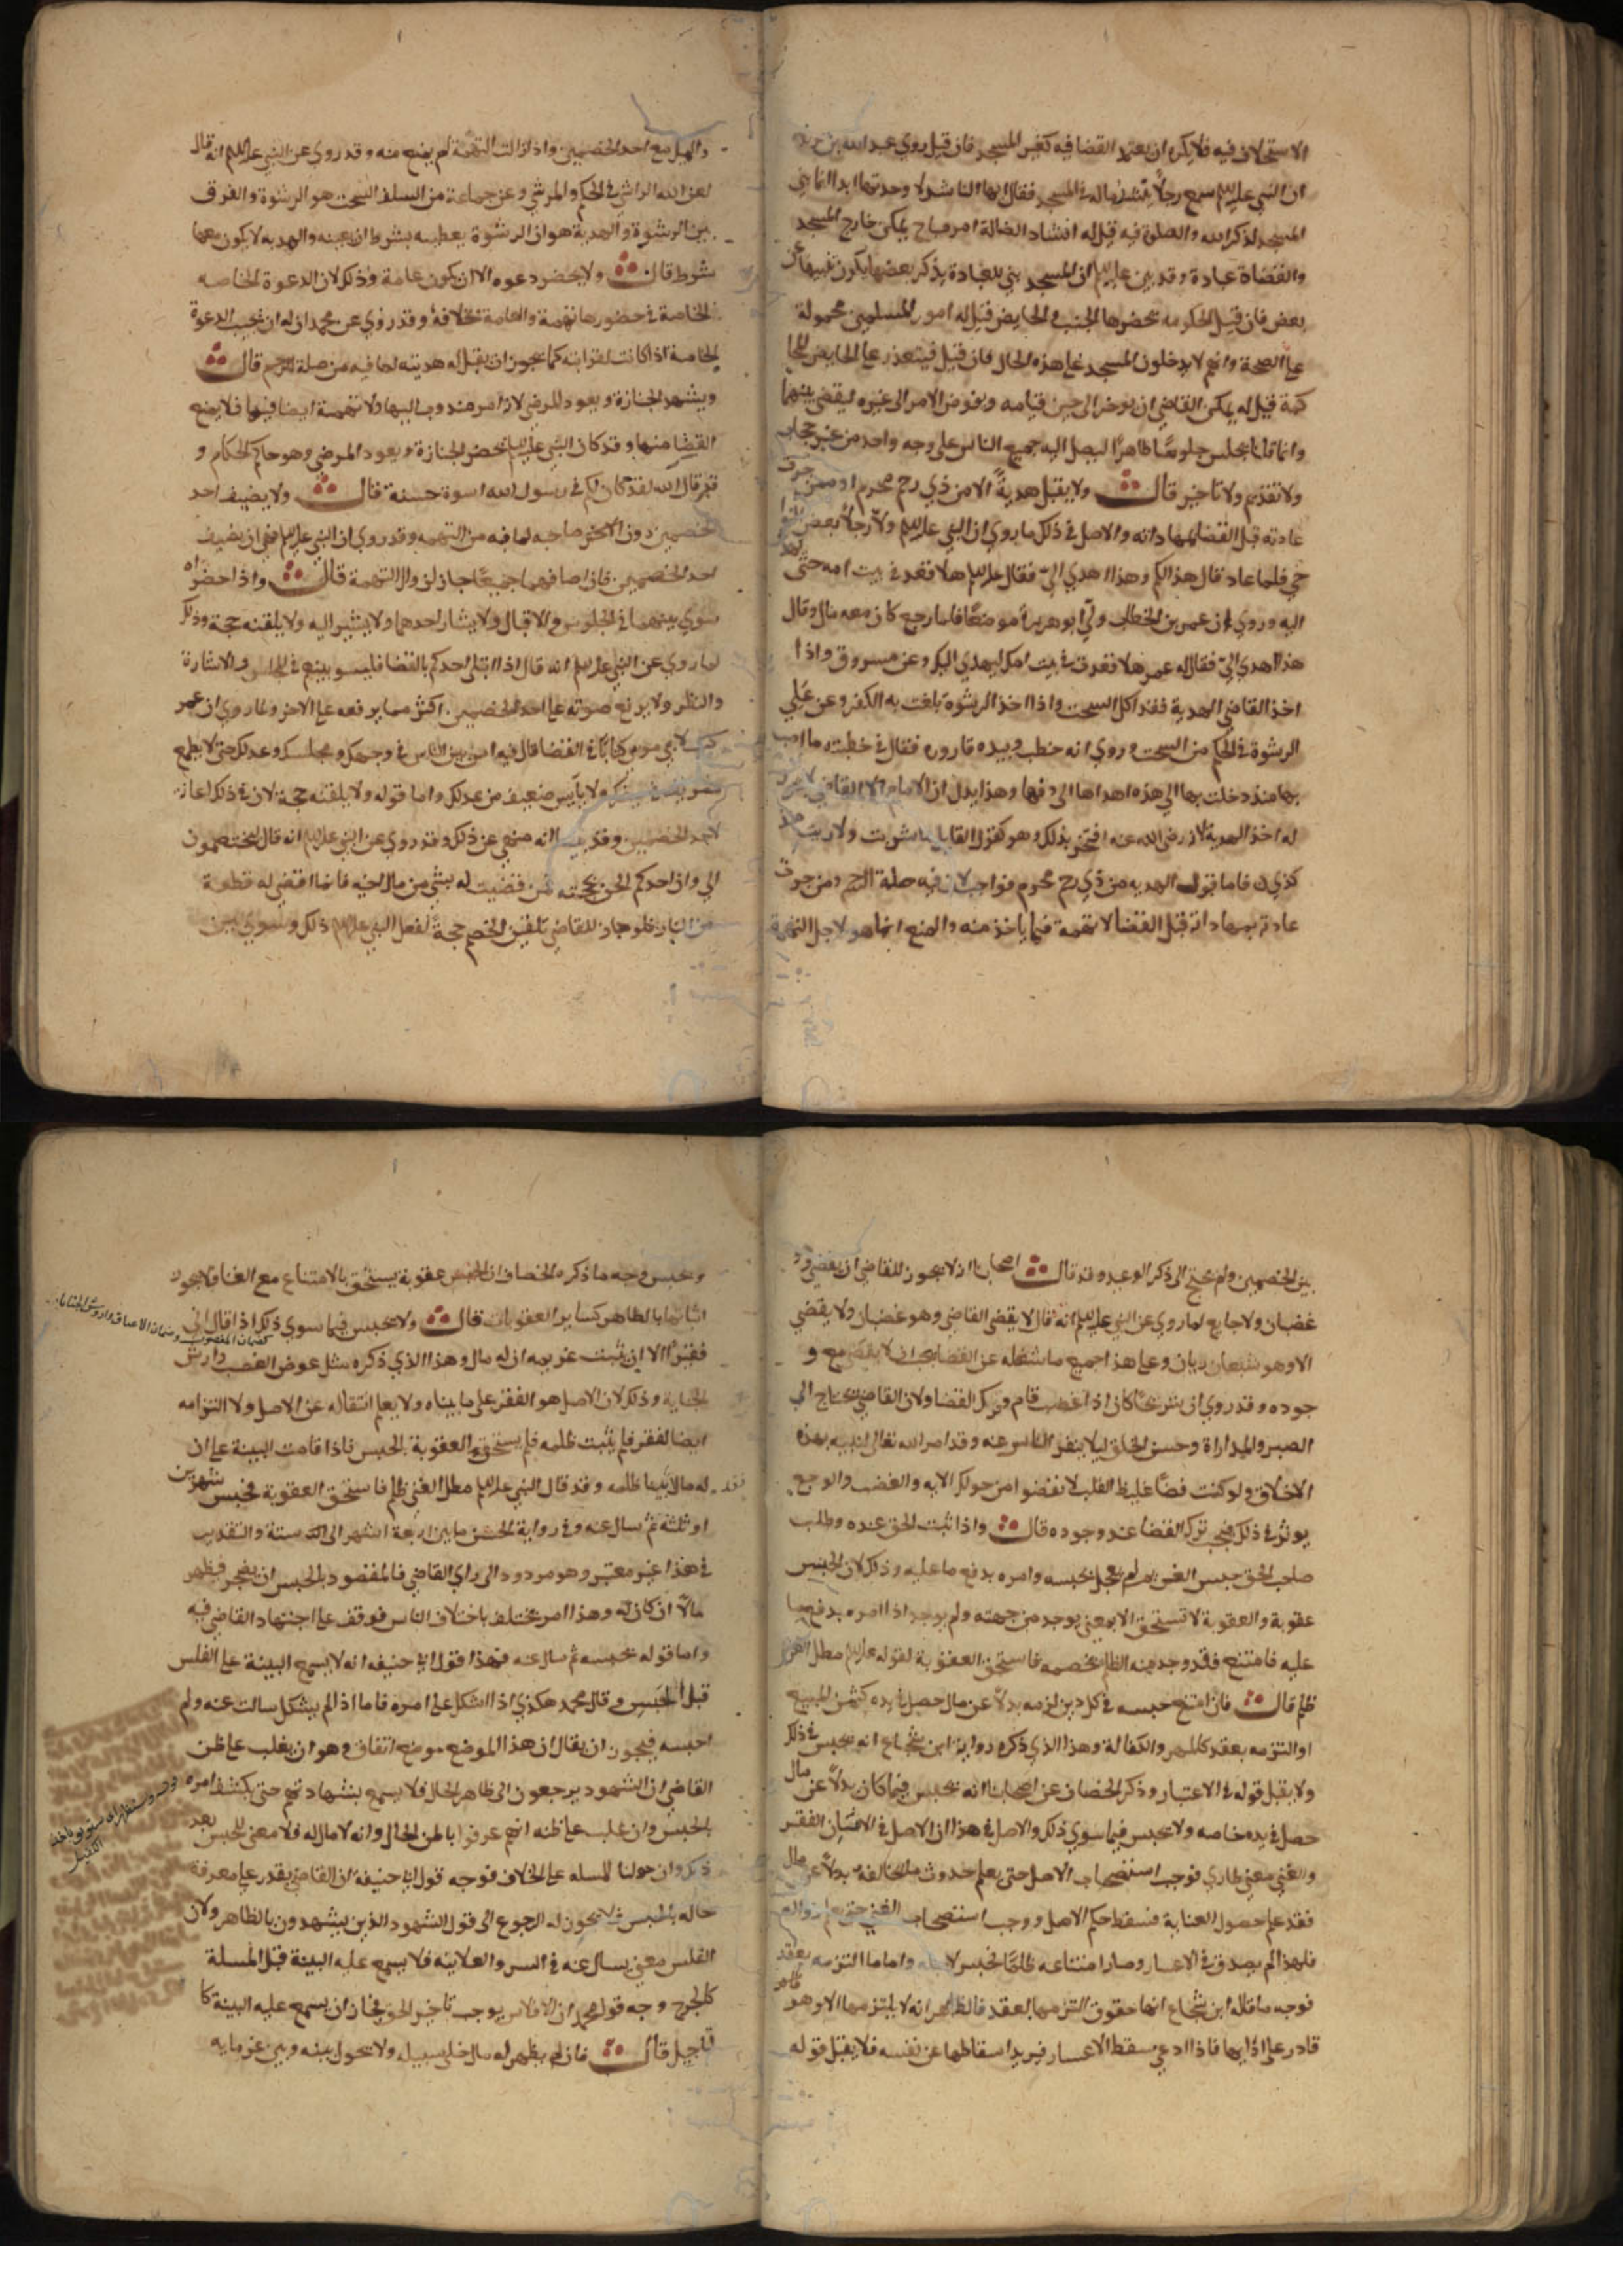 الاستحلاف فيه فلا يكره ان يعتمد القضا فيه كغير المسجد فان قيل روي عبد الله بن
ان النبي عليه السلم سمع رجلاً ينشد ضاله في المسجد فقال ايها الناشد لا وجدتها ابدا انما بني
المسجد لذكر الله والصلوة فيه قيل له انشاد الضالة امر مباح يمكن خارج المسجد
والقضاة عبادة وقد بين عليه السلم ان المسجد بني للعبادة بذكر بعضها يكون تنبيها عن
بعض فان قيل الحكومه يحضرها الجنب والحايض قيل له امور المسلمين محمولة
علي الصحة وانهم لا يدخلون المسجد علي هذه الحال فان قيل فيتعذر علي الحايض
كمة قيل له يمكن القاضي ان يوخر الي حين قيامه ويفوض الامر الي غيره ليقضي بينهما
وانما قلنا يجلس جلوسًا ظاهرًا ليصل اليه جميع الناس علي وجه واحد من غير حجاب
ولا تقديم ولا تاخير قال ولا يقبل هديةً الا من ذي رحم محرم او ممن جرت
عادته قبل القضا بمهاداته والاصل في ذلك ما روي ان النبي عليه السلم ولاّ رجلاً بعض
حي فلما عاد قال هذا لكم وهذا اهدي اليّ فقال عليه السلم هلا قعد في بيت امه حتّي
اليه وروي ان عمر بن الخطاب ولّي ابو هريرة موضعًا فلما رجع كان معه مال وقال
هذا اهدي اليّ فقال له عمر هلا قعدت في بيت امك ليهدي اليك وعن مسروق واذا
اخذ القاضي الهدية فقد اكل السحت واذا اخذ الرشوة بلغت به الكفر وعن علي
الرشوة في الحكم من السحت وروي انه خطب وبيده قاروره فقال في خطبته ما اصب
بها منذ دخلت بها الي هذه اهداها الي دهقا وهذا يدل ان الامام الا القاضي
له اخذ الهدية لانه رضي الله عنه افتخر بذلك وهو كقول القايل ما شربت ولا زنيت
كذي فاما قبول الهديه من ذي رحم محرم فواجب لان فيه صلة الرحم ومن جرت
عادته بمهاداته قبل القضا لا تهمة فيما ياخذ منه والمنع انما هو لاجل التهمة
والميل مع احد الخصمين واذا زالت التهمة لم يمنع منه وقد روي عن النبي عليه السلم انه قال
لعن الله الراشي في الحكم والمرتشي وعن جماعة من السلف السحت هو الرشوة والفرق
بين الرشوة والهدية هو ان الرشوة يعطيه بشرط ان يعينه والهديه لا يكون معها
شرط قال ولا يحضر دعوه الا ان يكون عامة وذلك لان الدعوة الخاصه
الخاصة في حضورها تهمة والعامة بخلافه وقد روي عن محمد ان له ان يجيب الدعوة
الخاصة اذا كانت لقرابته كما يجوز ان يقبل له هديته لما فيه من صلة الرحم قال
ويشهد الجنازة ويعود المرضي لانه امر مندوب اليها ولا تهمة ايضا فيها فلا يمنع
القضا منها وقد كان النبي عليه السلم يحضر الجنازة ويعود المرضي وهو حاكم الحكام و
قد قال الله لقد كان لكم في رسول الله اسوة حسنة قال ولا يضيف احد
الخصمين دون الاخر صاحبه لما فيه من التهمه وقد روي ان النبي عليه السلم نهي ان يضيف
احد الخصمين فان اضافهما جميعًا جاز لزوال التهمة قال واذا حضراه
سوي بينهما في الجلوس والاقبال ولا يشار احدهما ولا يشير اليه ولا يلقنه حجة وذلك
لما روي عن النبي عليه السلم انه قال اذا ابتلي احدكم بالقضا فليسو بينهم في المجلس والاشارة
والنظر ولا يرفع صوته علي احد الخصمين اكثر مما يرفعه علي الاخر ولما روي ان عمر
كتب لابي موسي كتابًا في القضا قال فيه اس بين الناس في وجهك ومجلسك وعدلك حتي لا يطمع
شريف في حيفك ولا يايس ضعيف من عدلك واما قوله ولا يلقنه حجة لان في ذلك اعانه
لاحد الخصمين وقد بينا انه منهي عن ذلك وقد روي عن النبي عليه السلم انه قال تختصمون
الي وان احدكم الحن بحجته فمن قضيت له بشي من مال اخيه فانما اقضي له قطعة
من النار فلو جاز للقاضي تلقين الخصم حجةً لفعل النبي عليه السلم ذلك وسوي بين
بين الخصمين ولم يحتج الي ذكر الوعيد وقد قال اصحابنا انه لا يجوز للقاضي ان يقضي وهو
غضبان ولا جايع لما روي عن النبي عليه السلم انه قال لا يقضي القاضي وهو غضبان ولا يقضي
الا وهو شبعان ريان وعلي هذا جميع ما شغله عن القضا يجب ان لا يقضي مع و
جوده وقد روي ان شريحًا كان اذا غضب قام وترك القضا ولان القاضي يحتاج الي
الصبر والمداراة وحسن الخلق ليلا ينفر الناس عنه وقد امر الله تعالي نبيه بهذه
الاخلاق ولو كنت فضًا غليظ القلب لانفضوا من حولك الايه والغضب والوجع
يوثر في ذلك فيجب ترك القضا عند وجوده قال واذا ثبت الحق عنده وطلب
صاحب الحق حبس الغريم لم يعجل بحبسه وامره بدفع ما عليه وذلك لان الحبس
عقوبة والعقوبة لا تستحق الا بمعني يوجد من جهته ولم يوجد اذا امره بدفع ما
عليه فامتنع فقد وجد منه الظلم بخصمه فاستحق العقوبة لقوله عليه السلم مطل الغني
ظلم قال فان امتنع حبسه في كل دين لزمه بدلاً عن مال حصل في يده كثمن المبيع
او التزمه بعقد كالمهر والكفالة وهذا الذي ذكره رواية ابن شجاع انه يحبس في ذلك
ولا يقبل قوله في الاعسار وذكر الخصاف عن اصحابنا انه يحبس فيما كان بدلاً عن مال
حصل في يده خاصه ولا يحبس فيما سوي ذلك والاصل في هذا ان الاصل في الانسان الفقر
والغني معني طاري فوجب استصحاب الاصل حتي يعلم حدوث ما يخالفه بدلاً عن مال
فقد علم حصول الغنا به فسقط حكم الاصل ووجب استصحاب الغني حتي يعلم زواله
فلهذا لم يصدق في الاعسار وصار امتناعه ظلمًا فحبس لاجله واما ما التزمه بعقد
فوجه ما قاله ابن شجاع انها حقوق التزمها بعقد فالظاهر انه لا يلتزمها الا وهو
قادر علي ادايها فاذا ادعي سقط الاعسار فيريد اسقاطها عن نفسه فلا يقبل قوله
ويحبس وجه ما ذكره الخصاف ان الحبس عقوبة يستحق بالامتناع مع الغنا فلا يجوز
اثباتها بالظاهر كساير العقوبات قال ولا يحبس فيما سوي ذلك اذا قال اني
فقير الا ان يثبت غريمه ان له مال وهذا الذي ذكره مثل عوض الغصب وارش
الجناية وذلك لان الاصل هو الفقر علي ما بيناه ولا يعلم انتقاله عن الاصل ولا التزامه
ايضا لفقر فلم يثبت ظلمه فلم يستحق العقوبة بالحبس فاذا قامت البينة علي ان
له مالا بينا ظلمه وقد قال النبي عليه السلم مطل الغني ظلم فاستحق العقوبة فحبس شهرين
او ثلثة ثم سال عنه وفي رواية الحسن ما بين اربعة اشهر الي ستة والتقدير
في هذا غير معتبر وهو مردود الي راي القاضي فالمقصود بالحبس ان يضجر فيظهر
مالاً ان كان له وهذا امر يختلف باختلاف الناس فوقف علي اجتهاد القاضي فيه
واما قوله يحبسه ثم سال عنه فهذا قول ابي حنيفه انه لا يسمع البينة علي الفلس
قبل الحبس وقال محمد هكذي اذا اشكل علي امره فاما اذا لم يشكل سالت عنه ولم
احبسه فيجوز ان يقال ان هذا الموضع موضع اتفاق وهو ان يغلب علي ظن
القاضي ان الشهود يرجعون الي ظاهر الحال فلا يسمع شهادتهم حتي يكشف امره
بالحبس وان غلب علي ظنه انهم عرفوا باطن الحال وانه لا مال له فلا معني للحبس بعد
ذلك وان حملنا المسله علي الخلاف فوجه قول ابي حنيفة ان القاضي يقدر علي معرفة
حاله بالحبس فلا يجوز له الرجوع الي قول الشهود الذين يشهدون بالظاهر ولان
الفلس معني يسال عنه في السر والعلانية فلا يسمع عليه البينة قبل المسلة
كالجرح وجه قول محمد ان الافلاس يوجب تاخير الحق فجاز ان يسمع عليه البينة كا
لتاجيل قال فان لم يظهر له مال خلي سبيله ولا يحول بينه وبين غرمايه